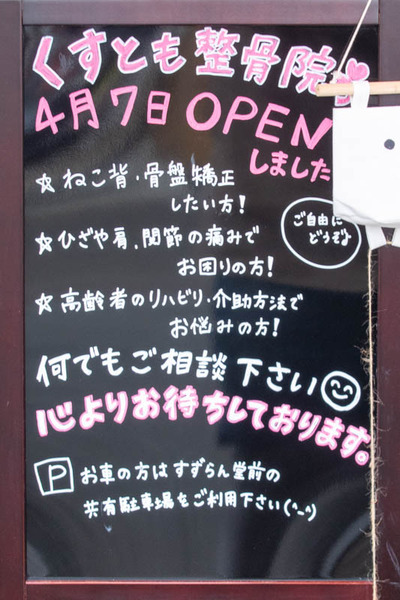 くすとも整骨院
4月7日 OPEN
しました
☆ねこ背・骨盤矯正
したい方!
ご自由に
どうぞ♪
☆ひざや肩、関節の痛みで
お困りの方!
☆高齢者のリハビリ・介助方法まで
お悩みの方!
何でもご相談下さい
心よりお待ちしております。
P お車の方はすずらん堂前の
共有駐車場をご利用下さい(^-^)